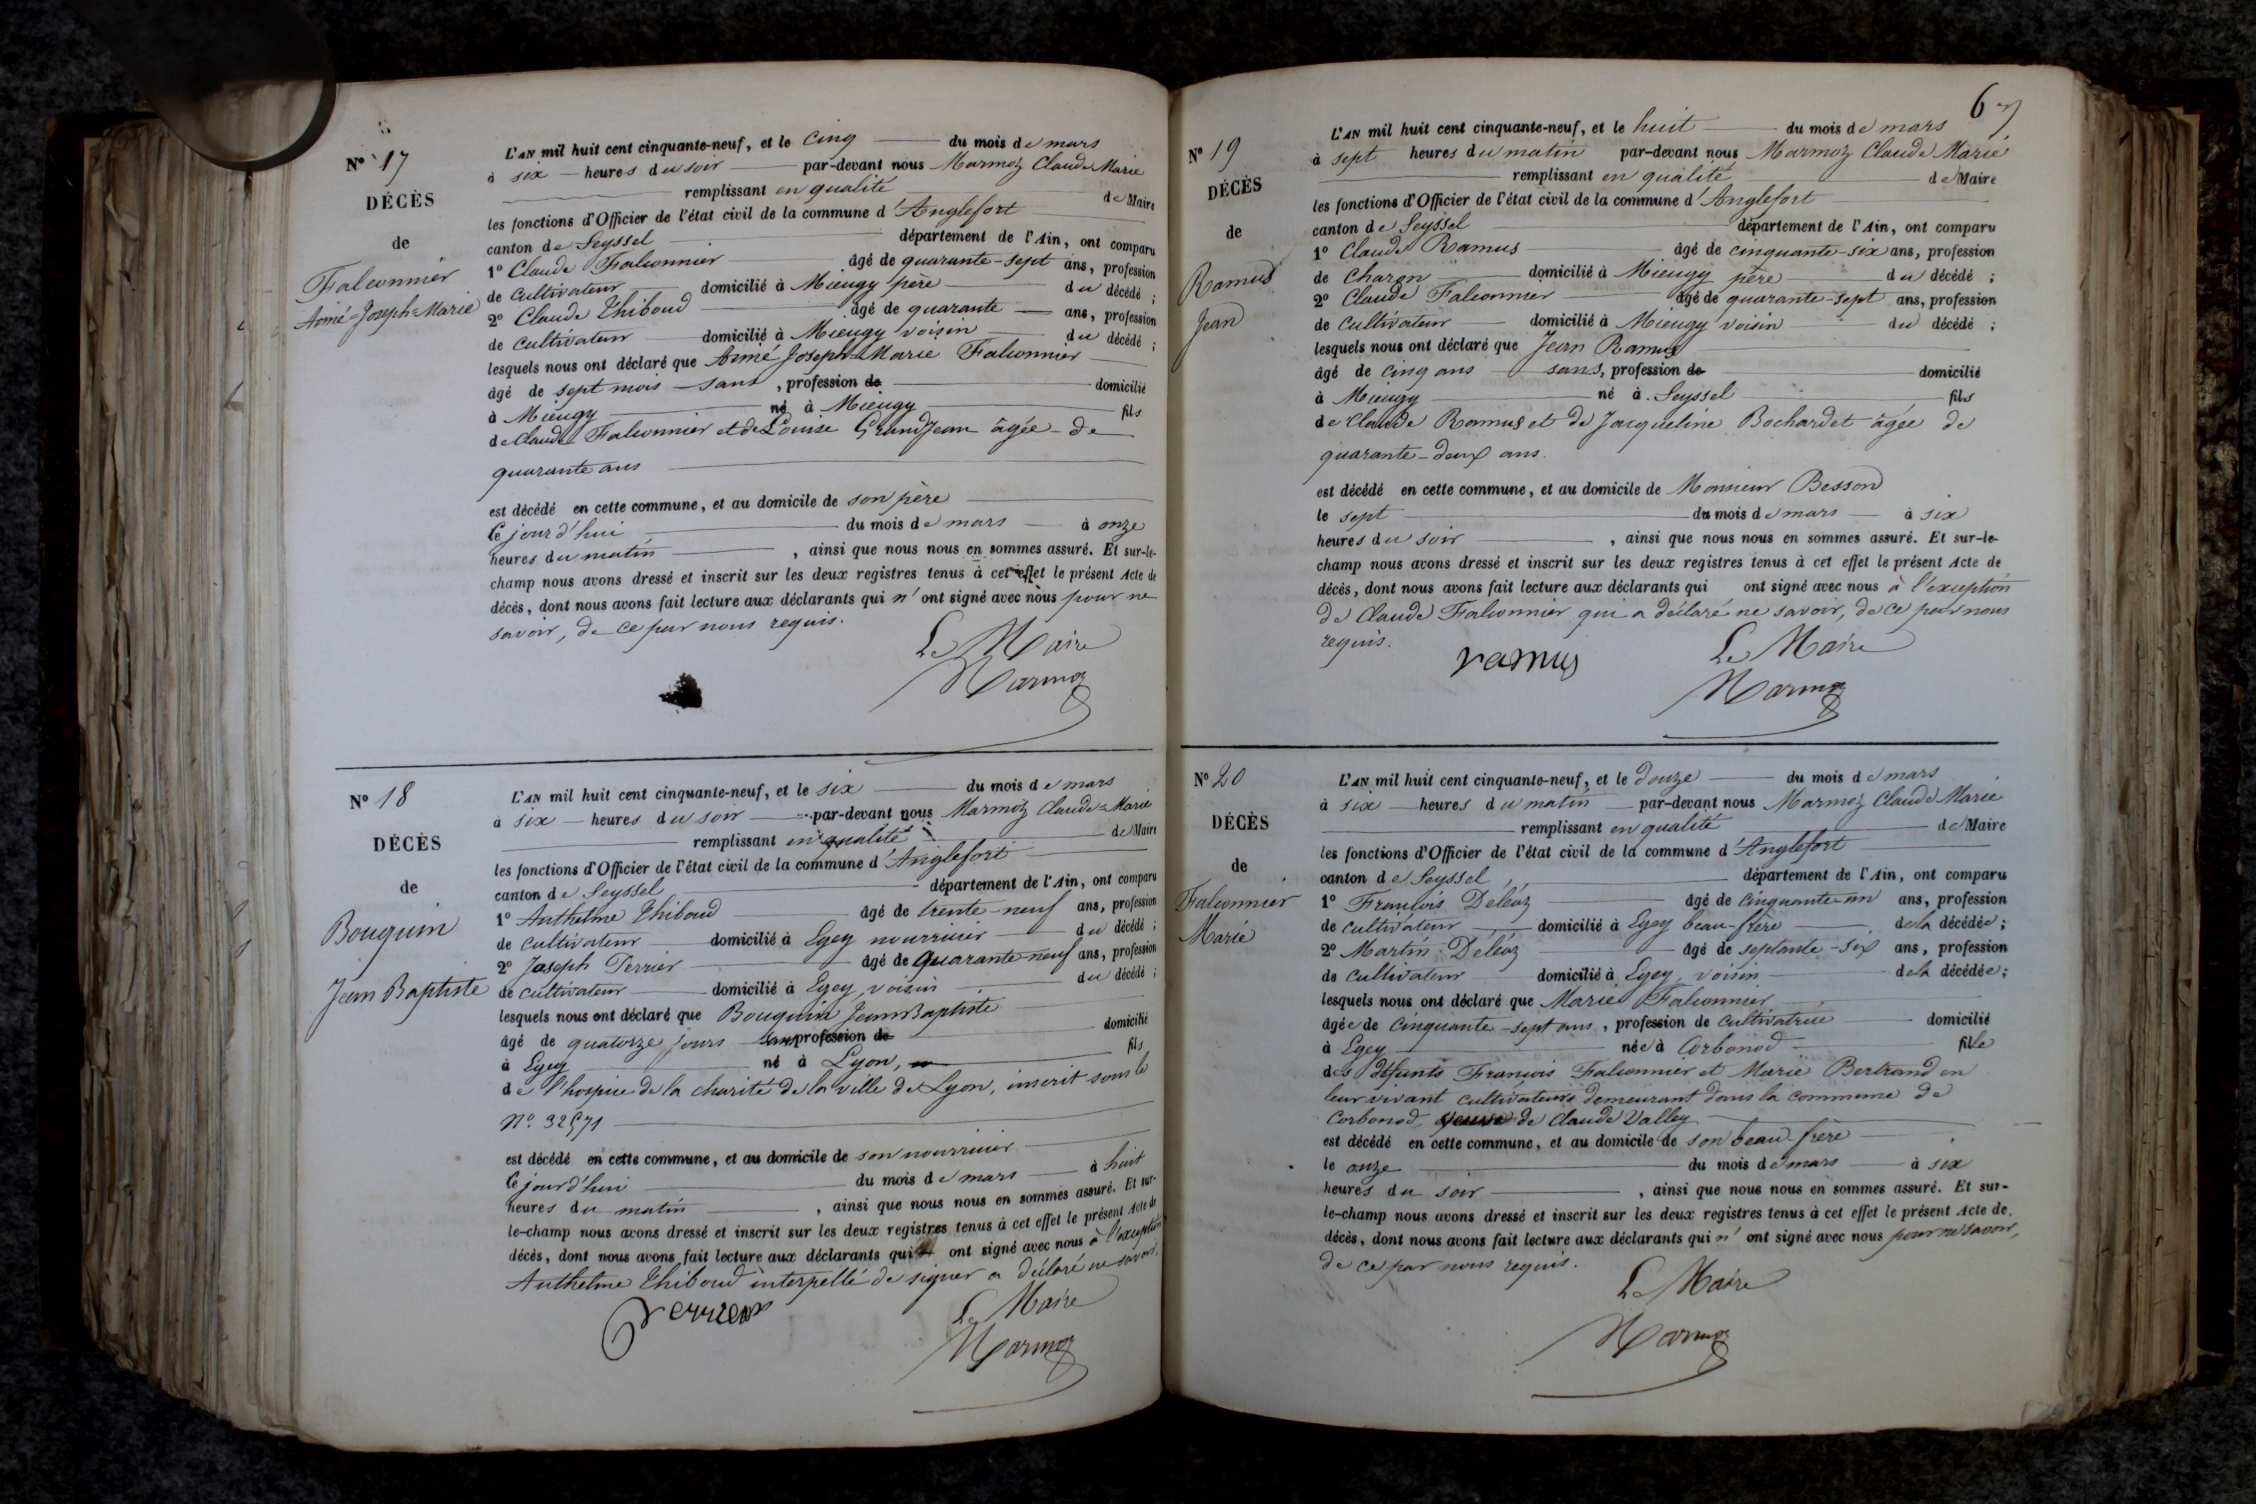 Nº 17
DÉCÈS
de
Falconnier
Aimé-Joseph-Marie
L'AN mil huit cent cinquante-neuf, et le cinq du mois de mars
à six heures du soir par-devant nous Marmoz Claude Marie
remplissant en qualité de Maire
les fonctions d'Officier de l'état civil de la commune d'Anglefort
canton de Seyssel département de l'Ain, ont comparu
1º Claude Falconnier âgé de quarante-sept ans, profession
de cultivateur domicilié à Mieugy père du décédé ;
2º Claude Thiboud âgé de quarante ans, profession
de cultivateur domicilié à Mieugy voisin du décédé ;
lesquels nous ont déclaré que Aimé Joseph Marie Falconnier
âgé de sept mois sans, profession de domicilié
à Mieugy né à Mieugy fils
de Claude Falconnier et de Louise GrandJean âgée de
quarante ans
est décédé en cette commune, et au domicile de son père
Ce jourd'hui du mois de mars à onze
heures du matin, ainsi que nous nous en sommes assuré. Et sur-le-
champ nous avons dressé et inscrit sur les deux registres tenus à cet effet le présent Acte de
décès, dont nous avons fait lecture aux déclarants qui n'ont signé avec nous pour ne
savoir, de ce par nous requis.
Le Maire
Marmoz
Nº 18
DÉCÈS
de
Bouquin
Jean Baptiste
L'AN mil huit cent cinquante-neuf, et le six du mois de mars
à six heures du soir par-devant nous Marmoz Claude-Marie
remplissant en qualité de Maire
les fonctions d'Officier de l'état civil de la commune d'Anglefort
canton de Seyssel département de l'Ain, ont comparu
1º Anthelme Thiboud âgé de trente-neuf ans, profession
de cultivateur domicilié à Egey nourricier du décédé ;
2º Joseph Perrier âgé de quarante neuf ans, profession
de cultivateur domicilié à Egey, voisin du décédé ;
lesquels nous ont déclaré que Bouquin Jean Baptiste
âgé de quatorze jours sans profession de domicilié
à Egey né à Lyon, fils
de l'hospice de la charité de la ville de Lyon, inscrit sous le
Nº. 32571
est décédé en cette commune, et au domicile de son nourricier
Ce jourd'hui du mois de mars à huit
heures du matin, ainsi que nous nous en sommes assuré. Et sur-
le-champ nous avons dressé et inscrit sur les deux registres tenus à cet effet le présent Acte de
décès, dont nous avons fait lecture aux déclarants qui ont signé avec nous à l'exception
Anthelme Thiboud interpellé de signer a déclaré ne savoir.
Perrier
Le Maire
Marmoz
67
Nº 19
DÉCÈS
de
Ramus
Jean
L'AN mil huit cent cinquante-neuf, et le huit du mois de mars
à sept heures du matin par-devant nous Marmoz Claude Marie
remplissant en qualité de Maire
les fonctions d'Officier de l'état civil de la commune d'Anglefort
canton de Seyssel département de l'Ain, ont comparu
1º Claude Ramus âgé de cinquante-six ans, profession
de Charon domicilié à Mieugy père du décédé ;
2º Claude Falconnier âgé de quarante-sept ans, profession
de cultivateur domicilié à Mieugy voisin du décédé ;
lesquels nous ont déclaré que Jean Ramus
âgé de cinq ans sans, profession de domicilié
à Mieugy né à Seyssel fils
de Claude Ramus et de Jacqueline Bochardet âgée de
quarante-deux ans.
est décédé en cette commune, et au domicile de Monsieur Besson
le sept du mois de mars à six
heures du soir, ainsi que nous nous en sommes assuré. Et sur-le-
champ nous avons dressé et inscrit sur les deux registres tenus à cet effet le présent Acte de
décès, dont nous avons fait lecture aux déclarants qui ont signé avec nous à l'exception
de Claude Falconnier qui a déclaré ne savoir, de ce par nous
requis.
ramus
Le Maire
Marmoz
Nº 20
DÉCÈS
de
Falconnier
Marie
L'AN mil huit cent cinquante-neuf, et le douze du mois de mars
à six heures du matin par-devant nous Marmoz Claude Marie
remplissant en qualité de Maire
les fonctions d'Officier de l'état civil de la commune d'Anglefort
canton de Seyssel département de l'Ain, ont comparu
1º François Déléaz âgé de cinquante-un ans, profession
de cultivateur domicilié à Egey beau-frère de la décédée ;
2º Martin Déléaz âgé de septante-six ans, profession
de cultivateur domicilié à Egey, voisin de la décédée ;
lesquels nous ont déclaré que Marie Falconnier
âgée de cinquante-sept ans, profession de cultivatrice domicilié
à Egey née à Corbonod fille
des défunts François Falconnier et Marie Bertrand en
leur vivant cultivateurs demeurant dans la commune de
Corbonod, veuve de Claude Valley
est décédé en cette commune, et au domicile de son beau-frère
le onze du mois de mars à six
heures du soir, ainsi que nous nous en sommes assuré. Et sur-
le-champ nous avons dressé et inscrit sur les deux registres tenus à cet effet le présent Acte de
décès, dont nous avons fait lecture aux déclarants qui n'ont signé avec nous pour ne savoir,
de ce par nous requis.
Le Maire
Marmoz